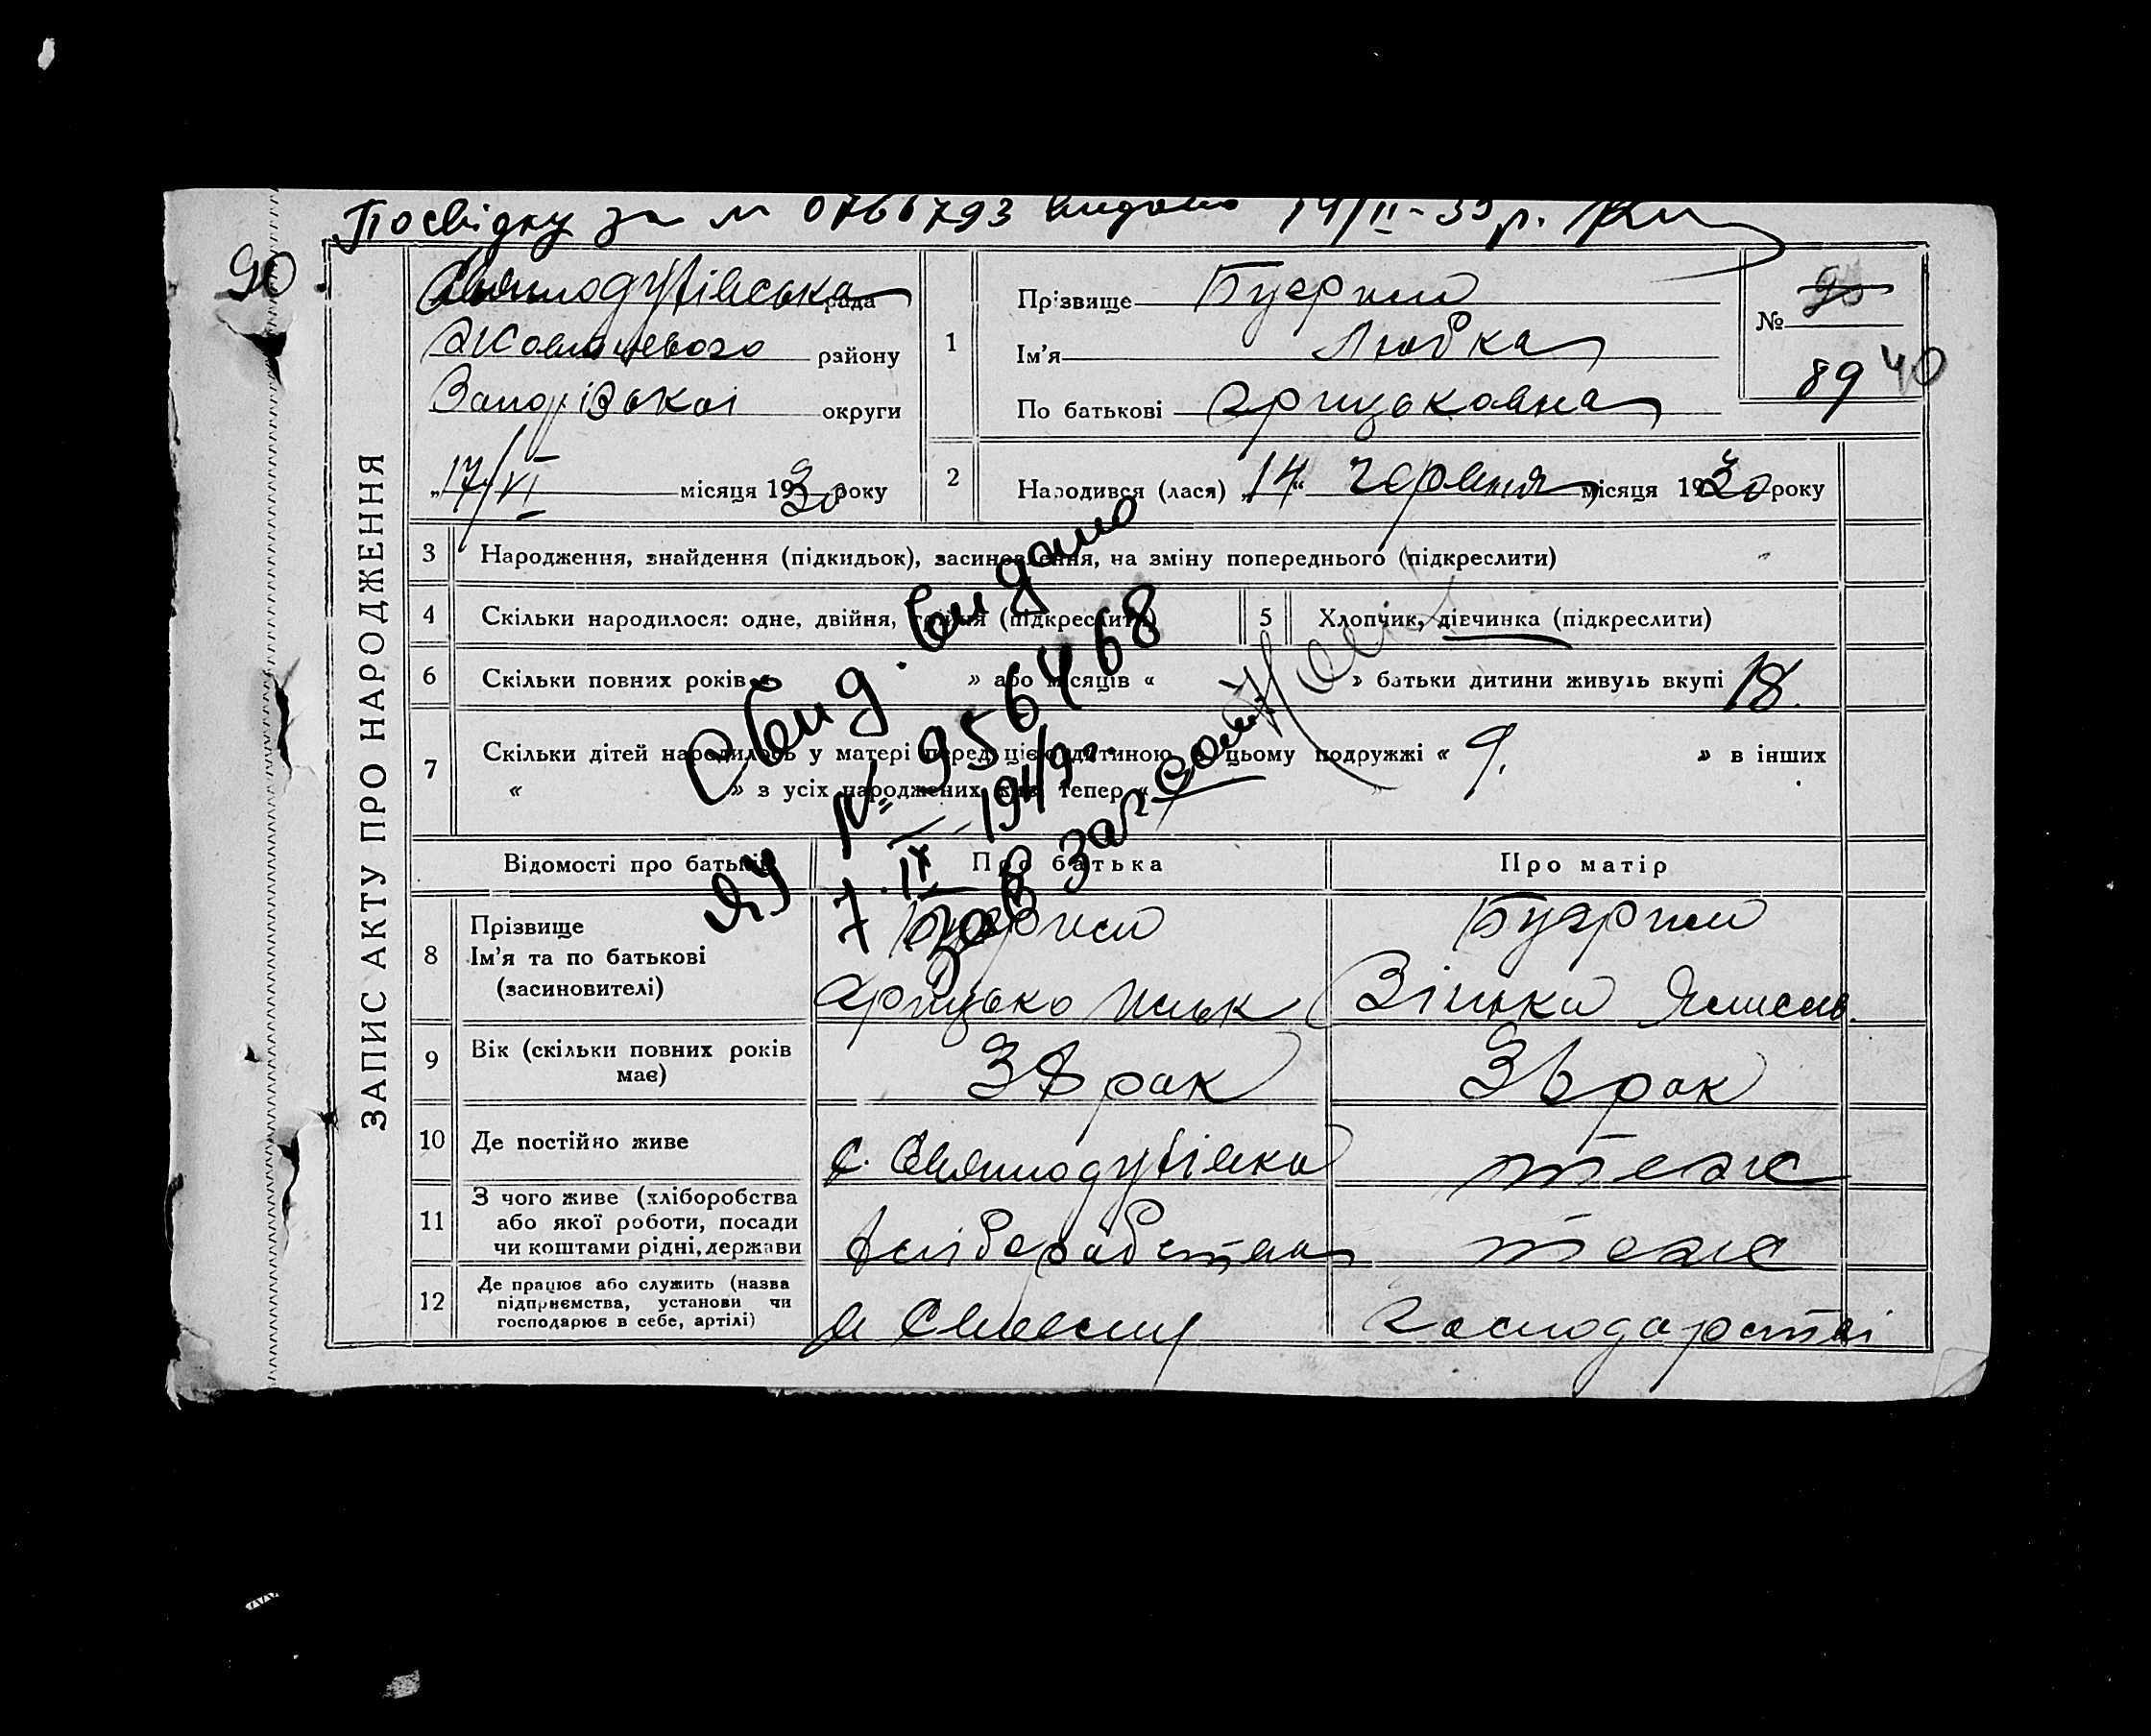 Посвідку за № 0766793 видано 14/II-35 р.
90
ЗАПИС АКТУ ПРО НАРОДЖЕННЯ
Святодухівська рада
Жовтневого району
Запорізької округи
„17/VI місяця 1930 року
1
Прізвище Бугрим
Ім'я Любка
По батькові Грицьковна
№ 90
89 40
2 Народився (лася) „14“ червня місяця 1930 року
3 Народження, знайдення (підкидьок), засиновлення, на зміну попереднього (підкреслити)
4 Скільки народилося: одне, двійня, трійня (підкреслити)
5 Хлопчик, дівчинка (підкреслити)
6 Скільки повних років « » або місяців « » батьки дитини живуть вкупі 18.
7 Скільки дітей народилось у матері перед цією дитиною в цьому подружжі « 9. » в інших
« » з усіх народжених жив тепер « »
Свид. видано
ЯУ № 956468
7.IX 1949г.
Зав Загсом
Відомості про батьків
Про батька
Про матір
8 Прізвище
Ім'я та по батькові
(засиновителі)
Бугрим
Грицько
Бугрим
Зінька
9 Вік (скільки повних років
має)
38 рок
36 рок
10 Де постійно живе
с. Святодухівка
теж
11 З чого живе (хліборобства
або якої роботи, посади
чи коштами рідні, держави
хліборобства
теж
12 Де працює або служить (назва
підприємства, установи чи
господарює в себе, артілі)
в своєму
господарстві